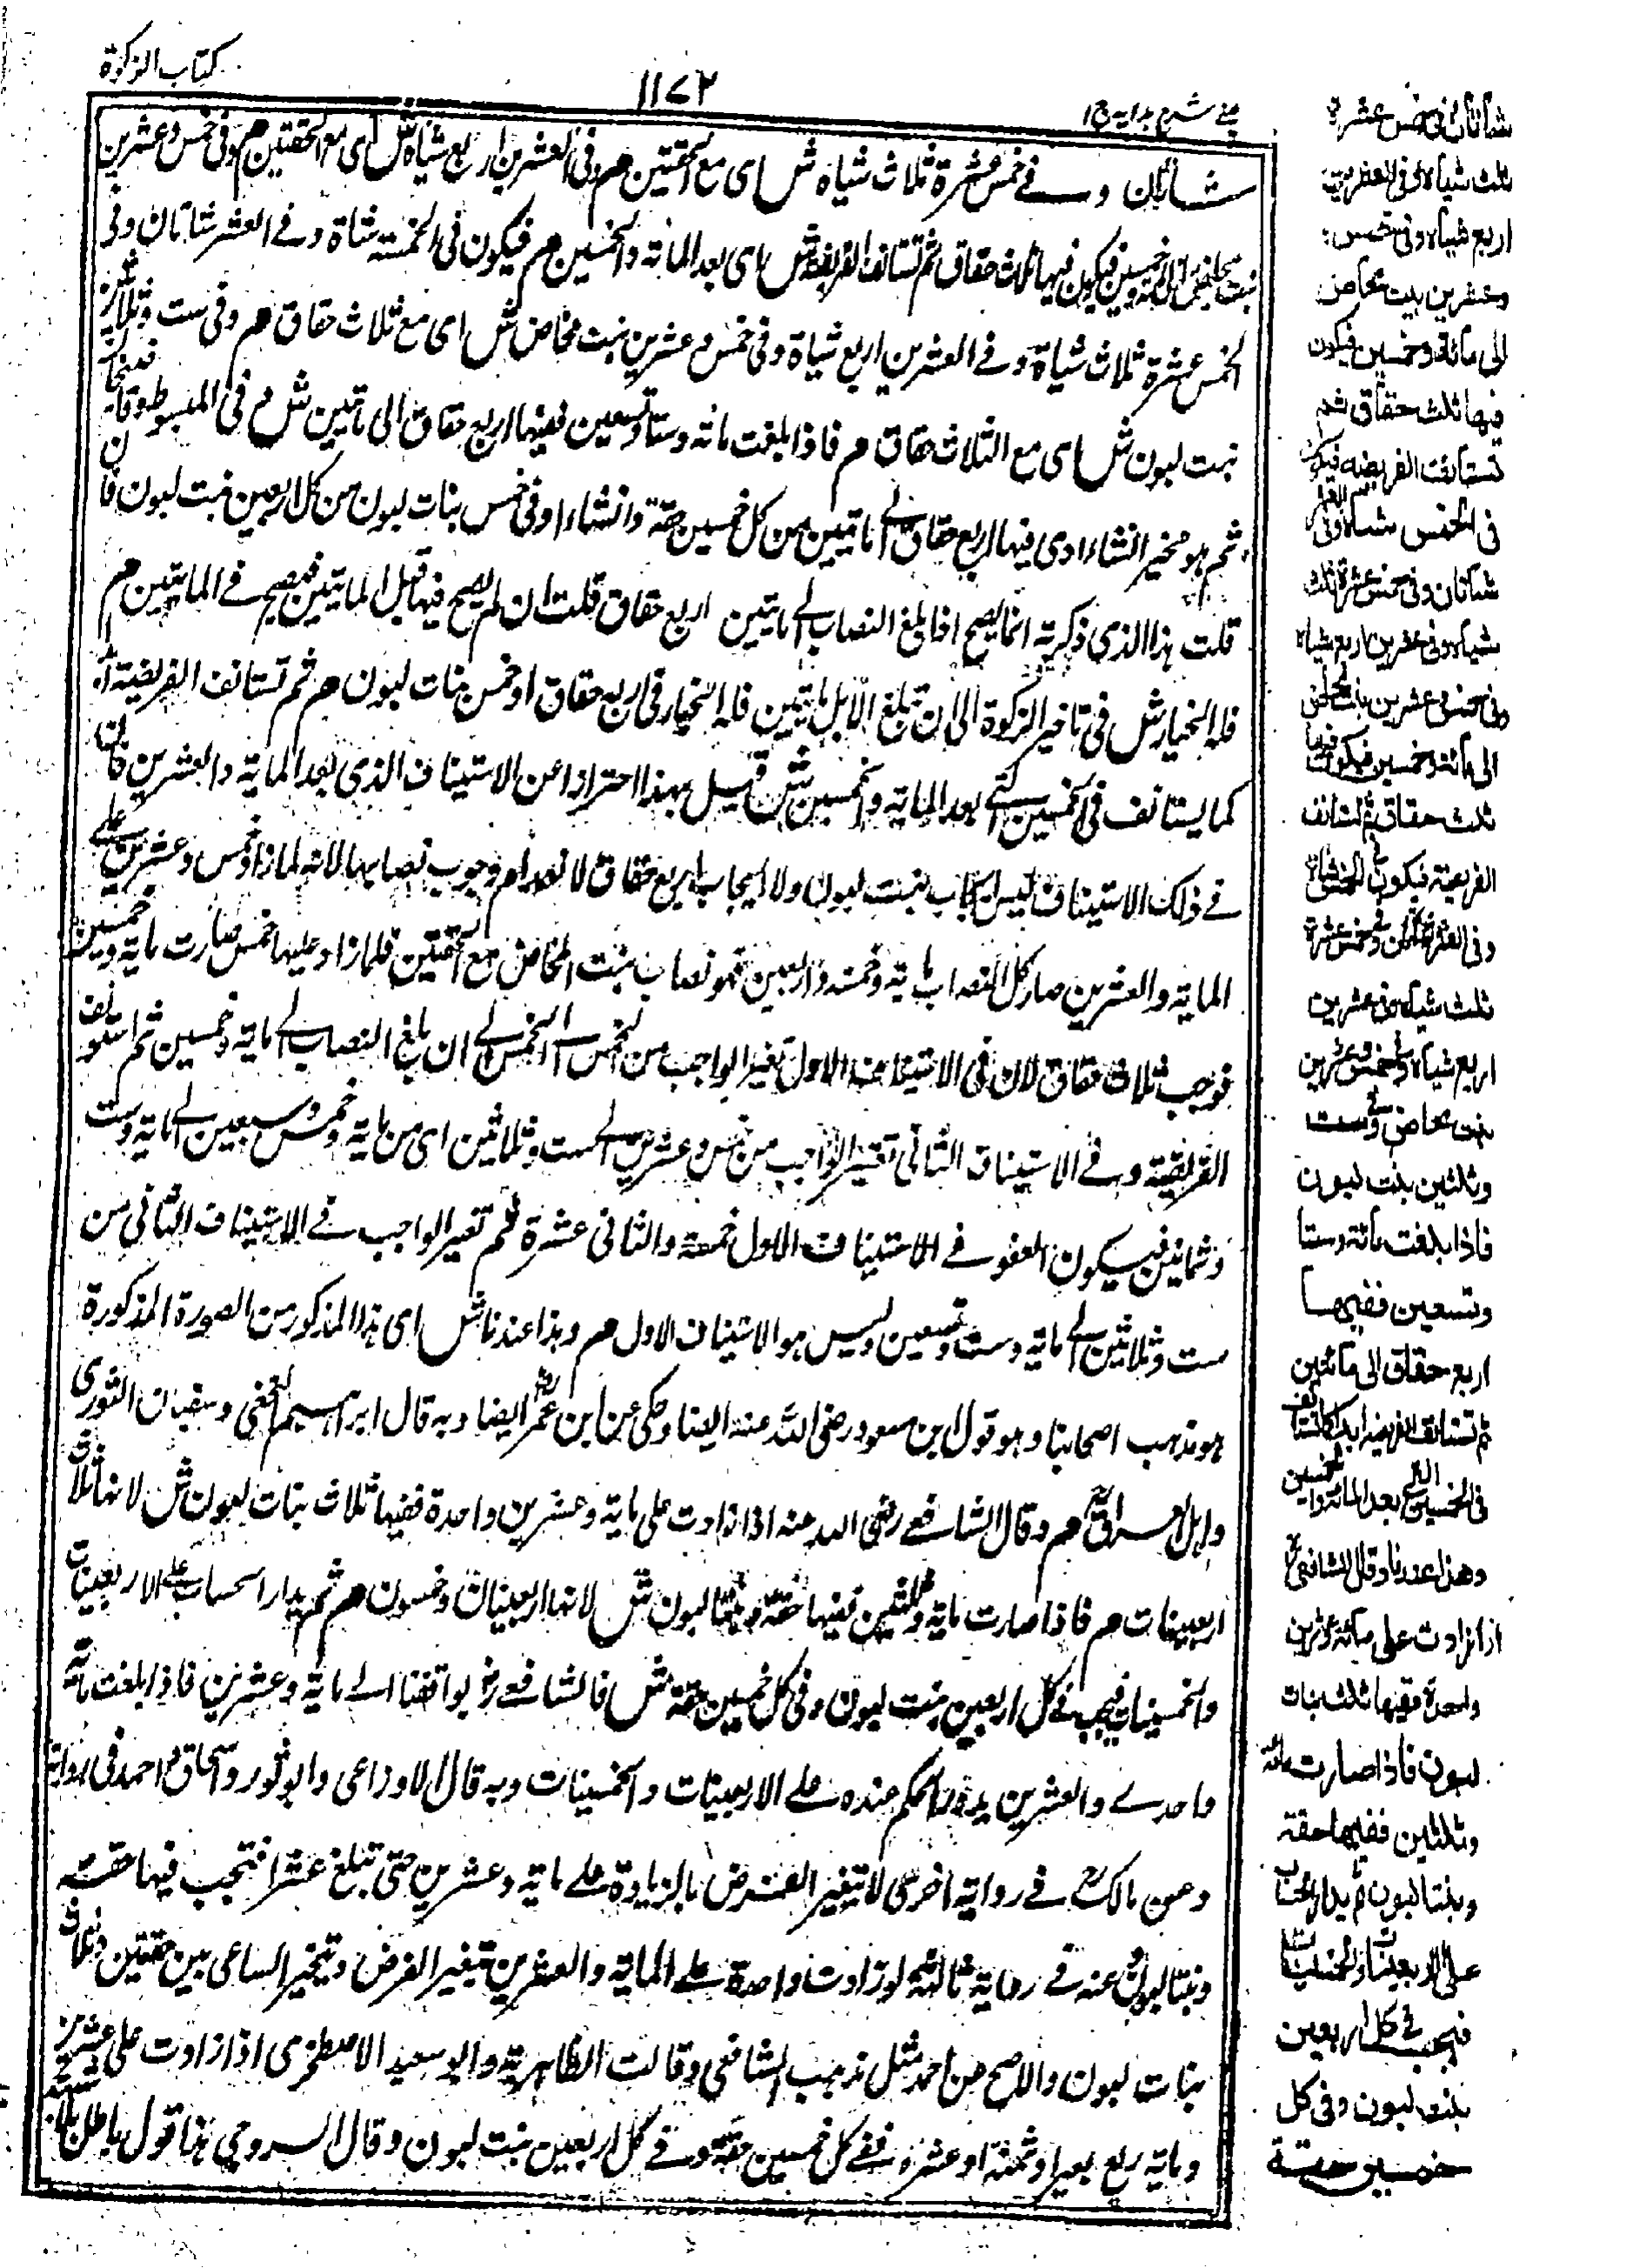 كتاب الزكوة
١١٧٢
عينے شرح هدايه ج ١
شاتان وفے خمس عشرة ثلاث شياه ش اى مع الحقتين هم وفى العشرين اربع شياه ش اى مع الحقتين هم وفى خمس وعشرين
بنت مخاض الى مائة وخمسين فيكون فيها ثلاث حقاق ثم تستانف الفريضة ش اى بعد المائة والخمسين هم فيكون فى الخمسة شاة وفے العشر شاتان وفى
الخمس عشرة ثلاث شياة وفے العشرين اربع شياة وفى خمس وعشرين بنت مخاض ش اى مع ثلاث حقاق هم وفى ست وثلاثين
بنت لبون ش اى مع الثلاث حقاق هم فاذا بلغت مائه وستا وتسعين ففيها اربع حقاق الى مايتين ش م فى المبسوط وقا
ثم هو مخير ان شاء ادى فيها اربع حقاق لے مايتين من كل خمسين حقة وان شاء ادى خمس بنات لبون من كل اربعين بنت لبون فان
قلت هذا الذى ذكرته انما يصح اذا بلغ النصاب لے مايتين اربع حقاق قلت ان لم يصح فيها قبل المايتين فيصح فے المايتين هم
فله الخيار ش فى تاخير الزكوة الى ان تبلغ الابل مايتين فله الخيار فى اربع حقاق او خمس بنات لبون هم ثم تستانف الفريضة ابدا
كما يستانف فى الخمسين التے بعد المايه والخمسين ش قيل بهذا احترازا عن الاستيناف الذى بعد المايه والعشرين فان
فے ذلك الاستيناف ليس ايجاب بنت لبون ولا ايجاب اربع حقاق لانعدام وجوب نصابهما لانه لما زاد خمس وعشرين علے
المايه والعشرين صار كل النصاب مايه وخمسة واربعين فهو نصاب بنت المخاض مع الحقتين فلما زاد عليها خمس صارت مايه وخمسين
فوجب ثلاث حقاق لان فى الاستيناف الاول تغير الواجب من الخمس الے الخمس لے ان بلغ النصاب لے مايه وخمسين ثم استونف
الفريضة وفے الاستيناف الثانى تغير الواجب من خمس وعشرين لے ست وثلاثين اى من مايه وخمس وسبعين لے مايه وست
وثمانين فيكون العفو فے الاستيناف الاول خمسة والثانى عشرة ثم تغير الواجب فے الاستيناف الثانى من
ست وثلاثين لے مايه وست وتسعين وليس هو الاستيناف الاول هم وهذا عندنا ش اى هذا المذكور من الصورة المذكورة
هو مذهب اصحابنا وهو قول ابن مسعود رضى الله عنه ايضا وحكى عن ابن عمر ايضا وبه قال ابراهيم النخعى وسفيان الثورى
واهل العراق هم وقال الشافعے رضى الله عنه اذا زادت على مايه وعشرين واحدة ففيها ثلاث بنات لبون ش لانها ثلاث
اربعينات هم فاذا صارت مايه وثلثين ففيها حقة وبنتا لبون ش لانها اربعينان وخمسون هم ثم يدار الحساب علے الاربعينات
والخمسينات فيجب فے كل اربعين بنت لبون وفى كل خمسين حقة ش فالشافعے يوافقنا الے مايه وعشرين فاذا بلغت مائة
واحدے والعشرين يدور الحكم عنده علے الاربعينات والخمسينات وبه قال الاوزاعى وابو ثور واسحاق واحمد فى رواية
وعن مالك فے رواية اخرى لا يتغير الفرض بالزيادة علے مايه وعشرين حتى تبلغ عشرا فتجب فيها حقة
وبنتا لبون وعنه فے رواية ثالثة لو زادت واحدة علے المايه والعشرين تغير الفرض ويتخير الساعى بين حقتين وثلاث
بنات لبون والاصح من احمد مثل مذهب الشافعى وقالت الظاهرية وابو سعيد الاصطخرى اذا زادت على عشرين
ومايه ربع بعير او ثمنه او عشره ففے كل خمسين حقة وفے كل اربعين بنت لبون وقال السروجى هذا قول باطل
شاتان وفى خمس عشرة
ثلث شياه وفى العشرين
اربع شياه وفى خمس
وعشرين بنت مخاض
الى مائة وخمسين فيكون
فيها ثلث حقاق ثم
تستانف الفريضه فيكون
فى الخمس شاة وفى العشر
شاتان وفى خمس عشرة ثلث
شياه وفى عشرين اربع شياه
وفى خمس وعشرين بنت مخاض
الى مائة وخمسين فيكون فيها
ثلث حقاق ثم تستانف
الفريضة فيكون فى الخمس شاة
وفى العشر شاتان وفى خمس عشرة
ثلث شياه وفى عشرين
اربع شياه وفى خمس وعشرين
بنت مخاض وفے ست
وثلثين بنت لبون
فاذا بلغت مائة وستا
وتسعين ففيها
اربع حقاق الى مائتين
ثم تستانف الفريضة ابدا كما تستانف
فى الخمسين التى بعد المائة والخمسين
وهذا عندنا وقال الشافعى
اذا زادت على مائة وعشرين
واحدة ففيها ثلث بنات
لبون فاذا صارت مائة
وثلثين ففيها حقة
وبنتا لبون ثم يدار الحساب
على الاربعينات والخمسينات
فيجب فے كل اربعين
بنت لبون وفى كل
خمسين حقة